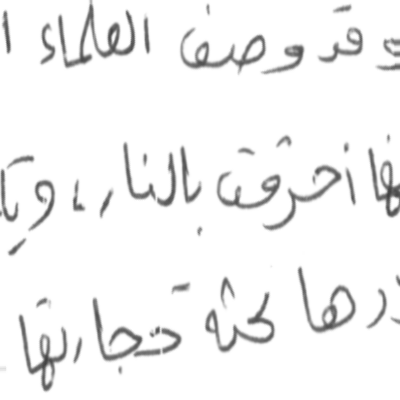 وقد وصف العلماء
أحرقت بالنار، و
رها كثه تجارتها